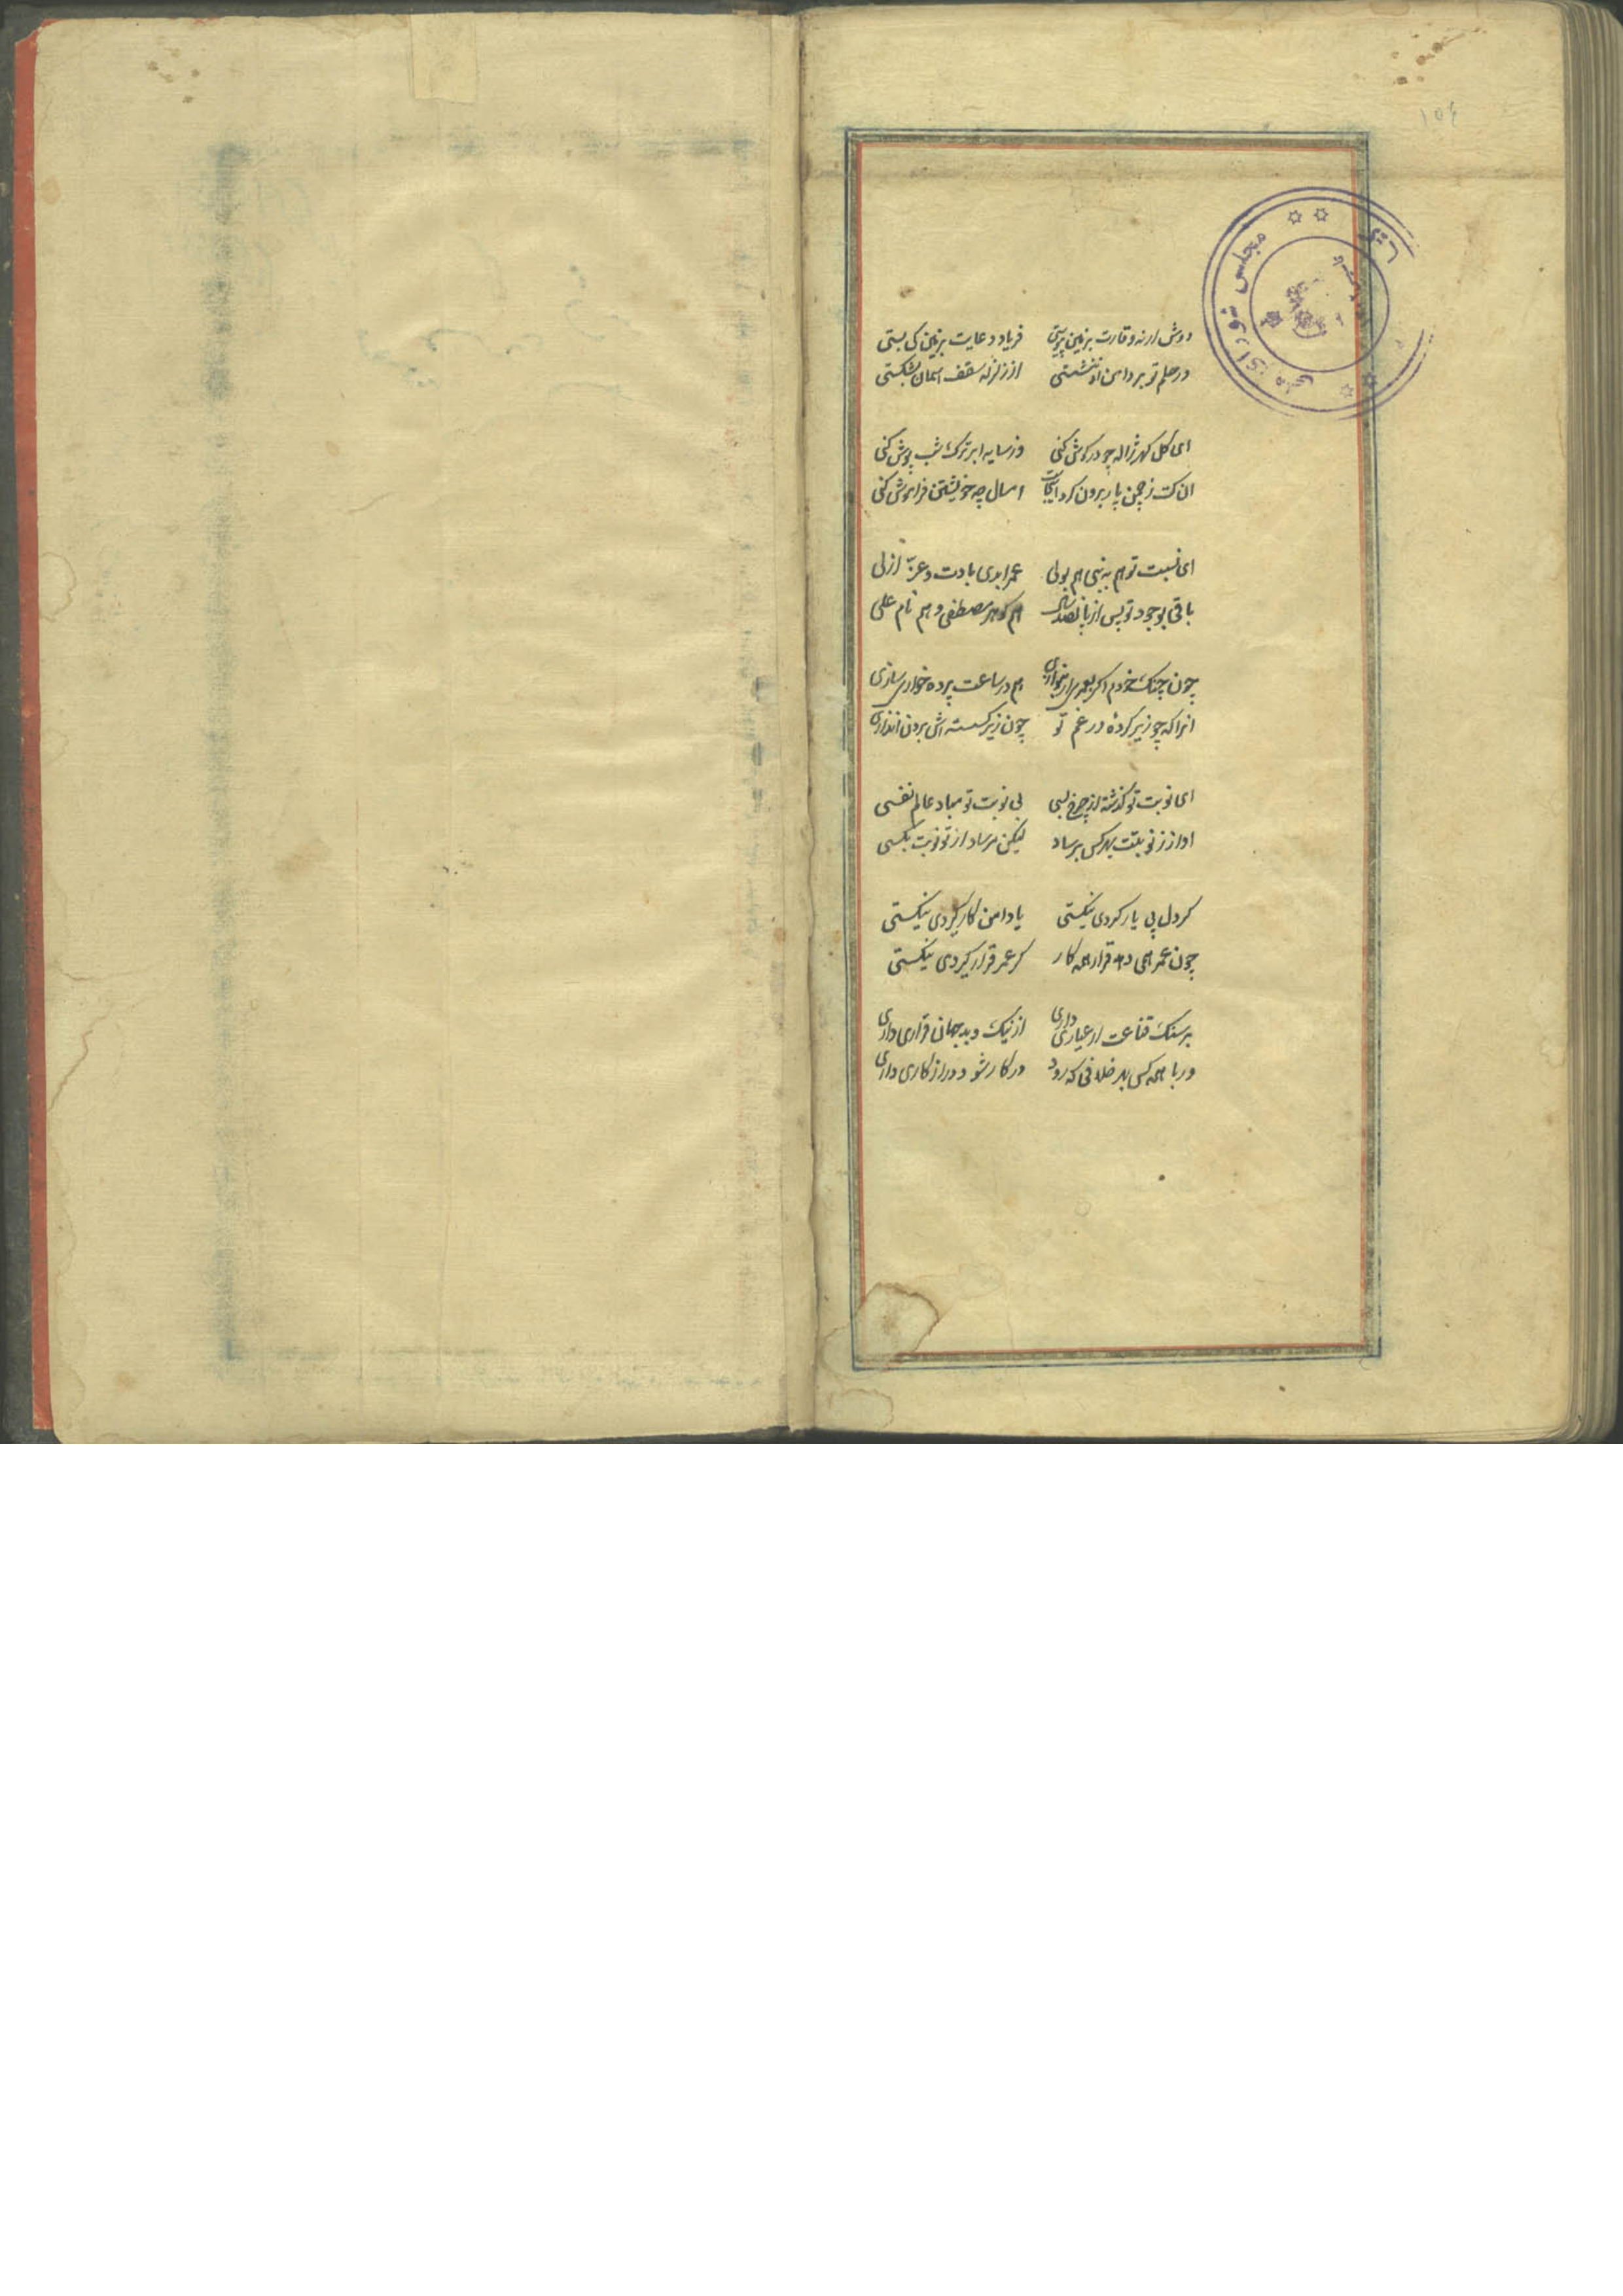 ۱۵۴
مجلس شورای ملی
دوش ار نه وقارت بزمین پیوستی فریاد و عایت بزمین کی بستی
ور حلم تو بر دامن او ننشستی از زلزله سقف اسمان بشکستی
ای کل کهر ژاله چو در کوش کنی وز سایه ابر ترک شب پوش کنی
ان کت ز چمن پار برون کرد اینجاست امسال چه خویشتن فراموش کنی
ای نسبت تو هم به نبی هم بولی عمر ابدی بادت و عز ازلی
باقی بوجود تو پس از پانصد سال هم کوهر مصطفی و هم نام علی
چون چنک خودم اکر بنوازی هم در ساعت پرده خواری سازی
انرا که چو زیر کردهٔ در غم تو چون زیر کسسته اش برون اندازی
ای نوبت تو کذشته از چرخ بسی بی نوبت تو مباد عالم نفسی
اواز ز نوبتت بهر کس برساد لیکن مرساد از تو نوبت بکسی
کر دل پی یار کردی نیکستی یا دامن کار کیردی نیکستی
چون عمر همی دهد قرار همه کار کر عمر قرار کیردی نیکستی
بر سنک قناعت ار عیاری داری از نیک و بد جهان قراری داری
ور با همه کس بهر خلافی که رود در کار شو و دراز کاری داری